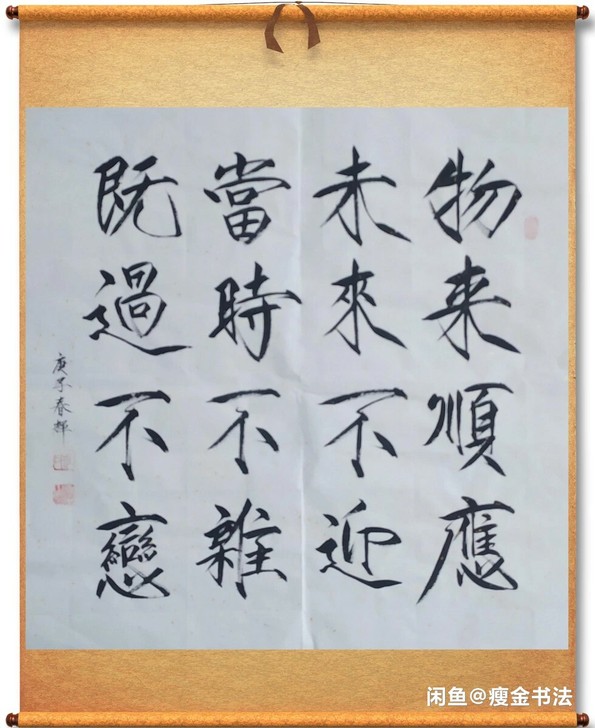 物来順應
未來不迎
當時不雜
既過不戀
庚子春輝
闲鱼@瘦金书法